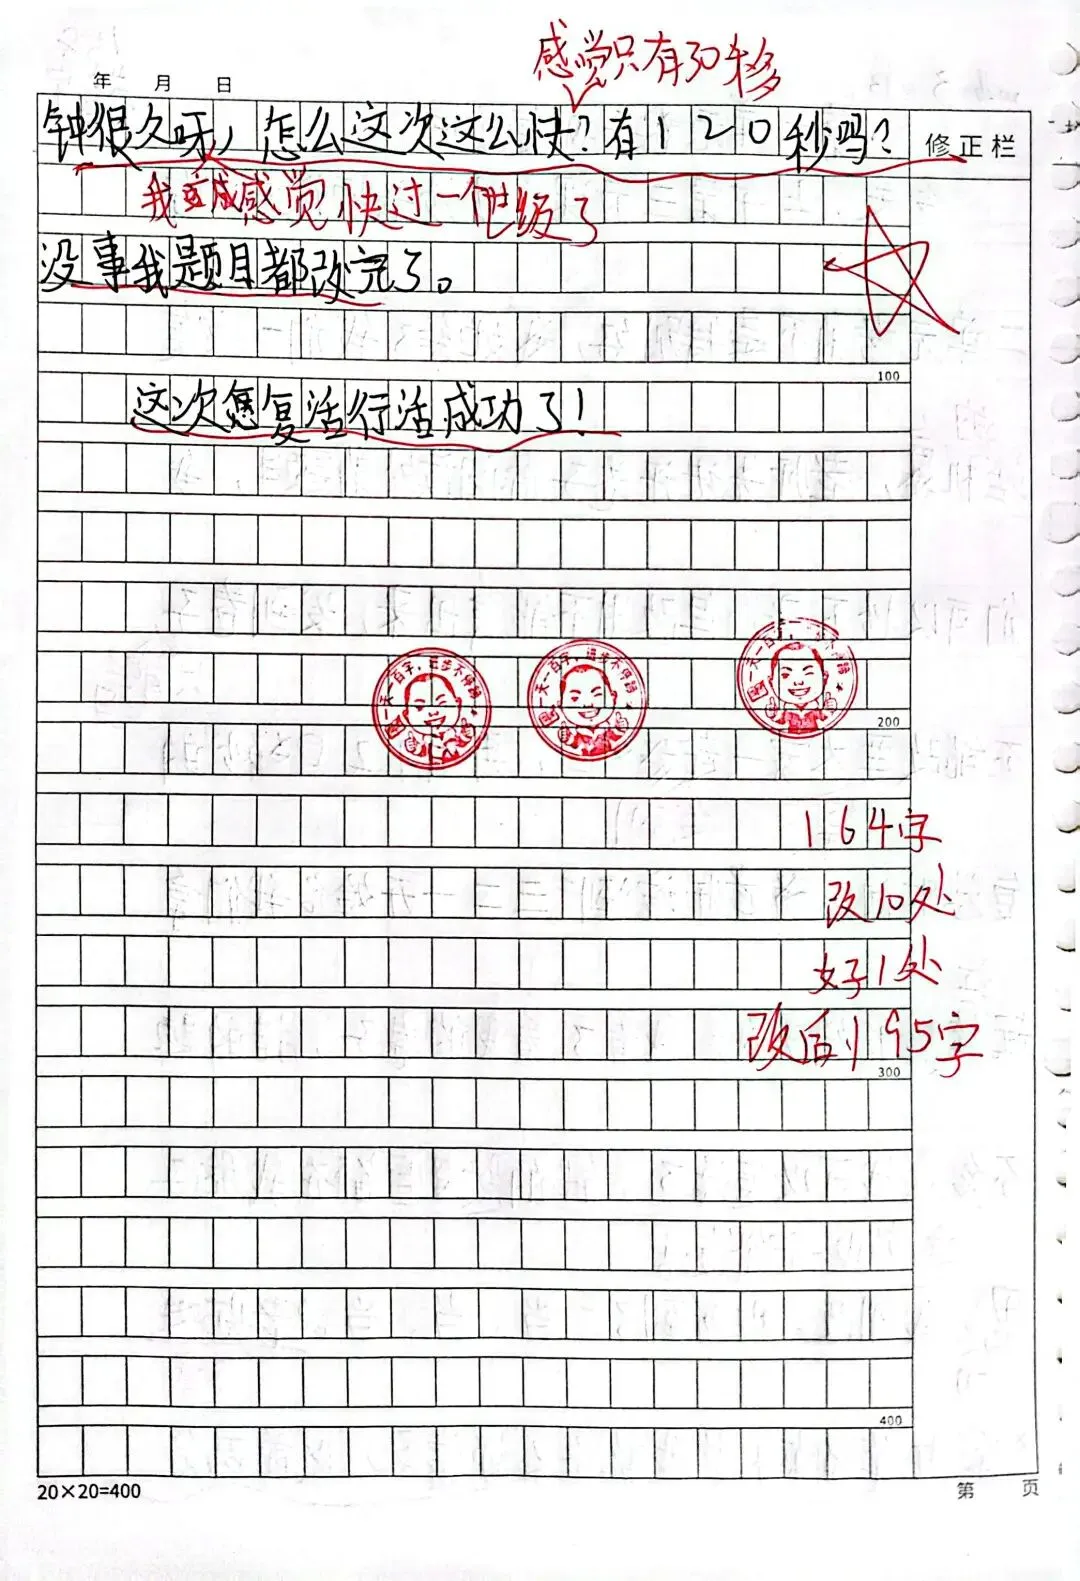 感觉只有30秒
年 月 日
钟很久呀，怎么这次这么快？有120秒吗？
修正栏
我感觉快过一个世级了
没事我题目都改完了。
100
这次怎复活行活成功了！
一天一百字，进步不停蹄
一天一百字，进步不停蹄
一天一百字，
200
164字
改10处
好1处
改后195字
300
400
20×20=400
第 页